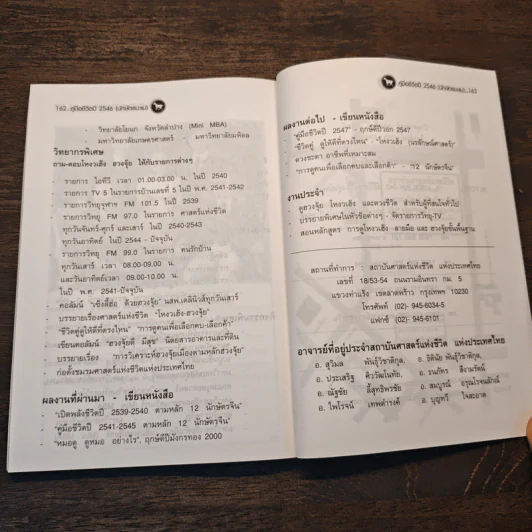 162..คู่มือชีวิตปี 2546 (นักษัตรมะแม)
- วิทยาลัยโยนก จังหวัดลำปาง (Mini MBA)
- มหาวิทยาลัยเกษตรศาสตร์ - มหาวิทยาลัยมหิดล
วิทยากรพิเศษ
ถาม-ตอบโหงวเฮ้ง ฮวงจุ้ย ให้กับรายการต่างๆ
- รายการ ไอทีวี เวลา 01.00-03.00 น. ในปี 2540
- รายการ TV 5 ในรายการบ้านเลขที่ 5 ในปี พ.ศ. 2541-2542
- รายการวิทยุจุฬาฯ FM 101.5 ในปี 2539
- รายการวิทยุ FM 97.0 ในรายการ ศาสตร์แห่งชีวิต
ทุกวันจันทร์-ศุกร์ และเสาร์ ในปี 2540-2543
ทุกวันอาทิตย์ ในปี 2544 - ปัจจุบัน
- รายการวิทยุ FM 99.0 ในรายการ คนรักบ้าน
ทุกวันเสาร์ เวลา 08.00-09.00 น.
และวันอาทิตย์เวลา 09.00-10.00 น.
ในปี พ.ศ. 2541-ปัจจุบัน
- คอลัมน์ "เซ้งลี้ฮ้อ ด้วยฮวงจุ้ย" นสพ.เดลินิวส์ทุกวันเสาร์
- บรรยายเรื่องศาสตร์แห่งชีวิต "โหงวเฮ้ง-ฮวงจุ้ย"
- "ชีวิตคู่ดูให้ดีที่ตรงไหน" "การดูคนเพื่อเลือกคบ-เลือกค้า"
- เขียนคอลัมน์ "ฮวงจุ้ยดี มีสุข" นิตยสารอาคารและที่ดิน
- บรรยายเรื่อง "การวิเคราะห์ฮวงจุ้ยเมืองตามหลักฮวงจุ้ย"
- ก่อตั้งชมรมศาสตร์แห่งชีวิตแห่งประเทศไทย
ผลงานที่ผ่านมา - เขียนหนังสือ
- "เปิดพลังชีวิตปี 2539-2540 ตามหลัก 12 นักษัตรจีน"
- "คู่มือชีวิตปี 2541-2545 ตามหลัก 12 นักษัตรจีน"
- "หมอดู ดูหมอ อย่างไร", ฤกษ์ดีปีมังกรทอง 2000
คู่มือชีวิตปี 2546 (นักษัตรมะแม)..163
ผลงานต่อไป - เขียนหนังสือ
- "คู่มือชีวิตปี 2547" - ฤกษ์ดีปีวอก 2547
- "ชีวิตคู่ ดูให้ดีที่ตรงไหน" - "โหงวเฮ้ง" (นรลักษณ์ศาสตร์)
- ดวงชะตา อาชีพที่เหมาะสม
- "การดูคนเพื่อเลือกคบและเลือกค้า" - "12 นักษัตรจีน"
งานประจำ
- ดูฮวงจุ้ย โหงวเฮ้ง และดวงชีวิต สำหรับผู้ที่สนใจทั่วไป
- บรรยายพิเศษในหัวข้อต่างๆ - จัดรายการวิทยุ-TV
- สอนหลักสูตร การดูโหงวเฮ้ง ลายมือ และ ฮวงจุ้ยขั้นพื้นฐาน
สถานที่ทำการ : สถาบันศาสตร์แห่งชีวิต แห่งประเทศไทย
เลขที่ 18/53-54 ถนนรามอินทรา กม. 5
แขวงท่าแร้ง เขตลาดพร้าว กรุงเทพฯ 10230
โทรศัพท์ (02)- 945-6034-5
แฟกซ์ (02)- 945-6101
อาจารย์ที่อยู่ประจำสถาบันศาสตร์แห่งชีวิต แห่งประเทศไทย
อ. สุวิมล พันธุ์วิชาติกุล, อ. ธิตินัย พันธุ์วิชาติกุล,
อ. ประเสริฐ ศิวรัตน์ อ. ธนภัทร
อ. ณัฐชัย ลี้สุทธิพรชัย อ. สมบูรณ์ อรุณโรจนสักณ์
อ. ไพโรจน์ เทพดำรงค์ อ. บุญทวี ใจสะอาด